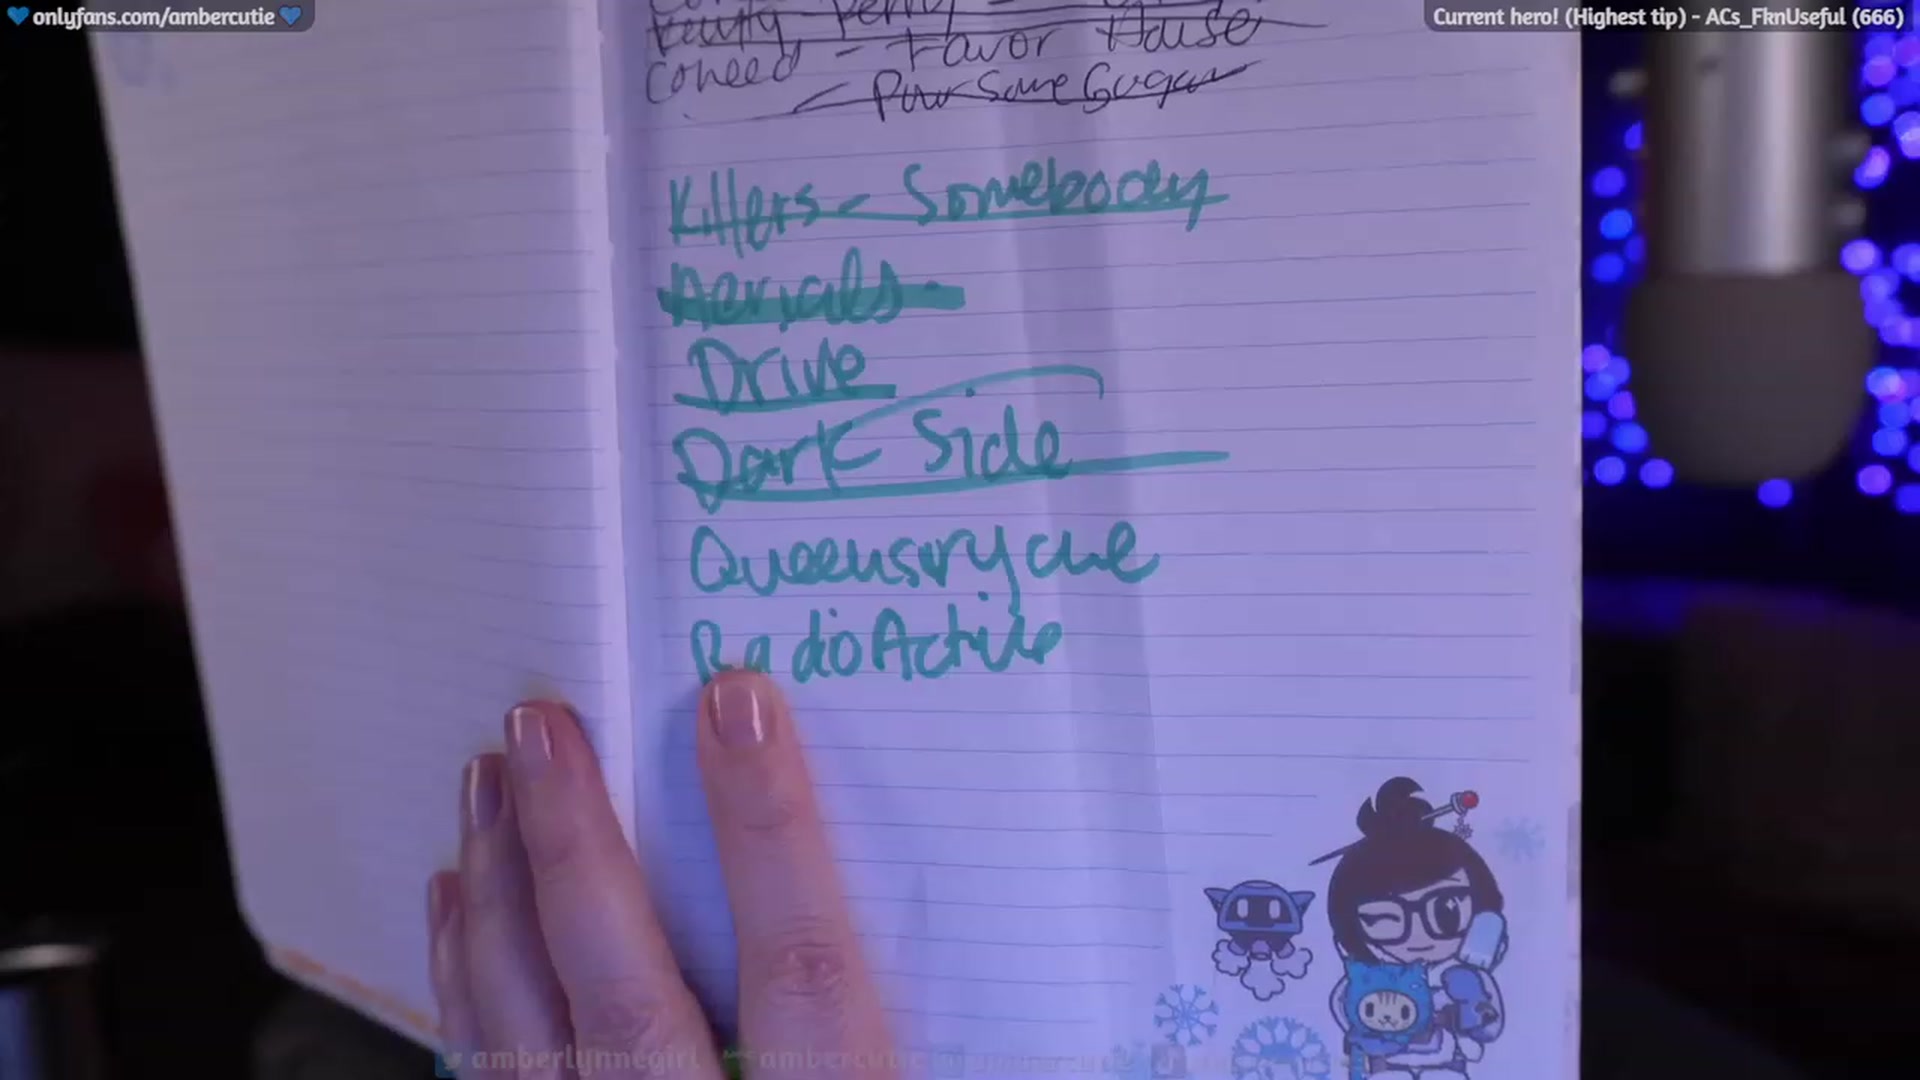 onlyfans.com/ambercutie
Current hero! (Highest tip) - ACs_FknUseful (666)
Coheed - Favor House
- Pour Some Sugar
Killers - Somebody
Aerials
Drive
Dark Side
Queensryche
RadioActive
amberlynnegirl ambercutie